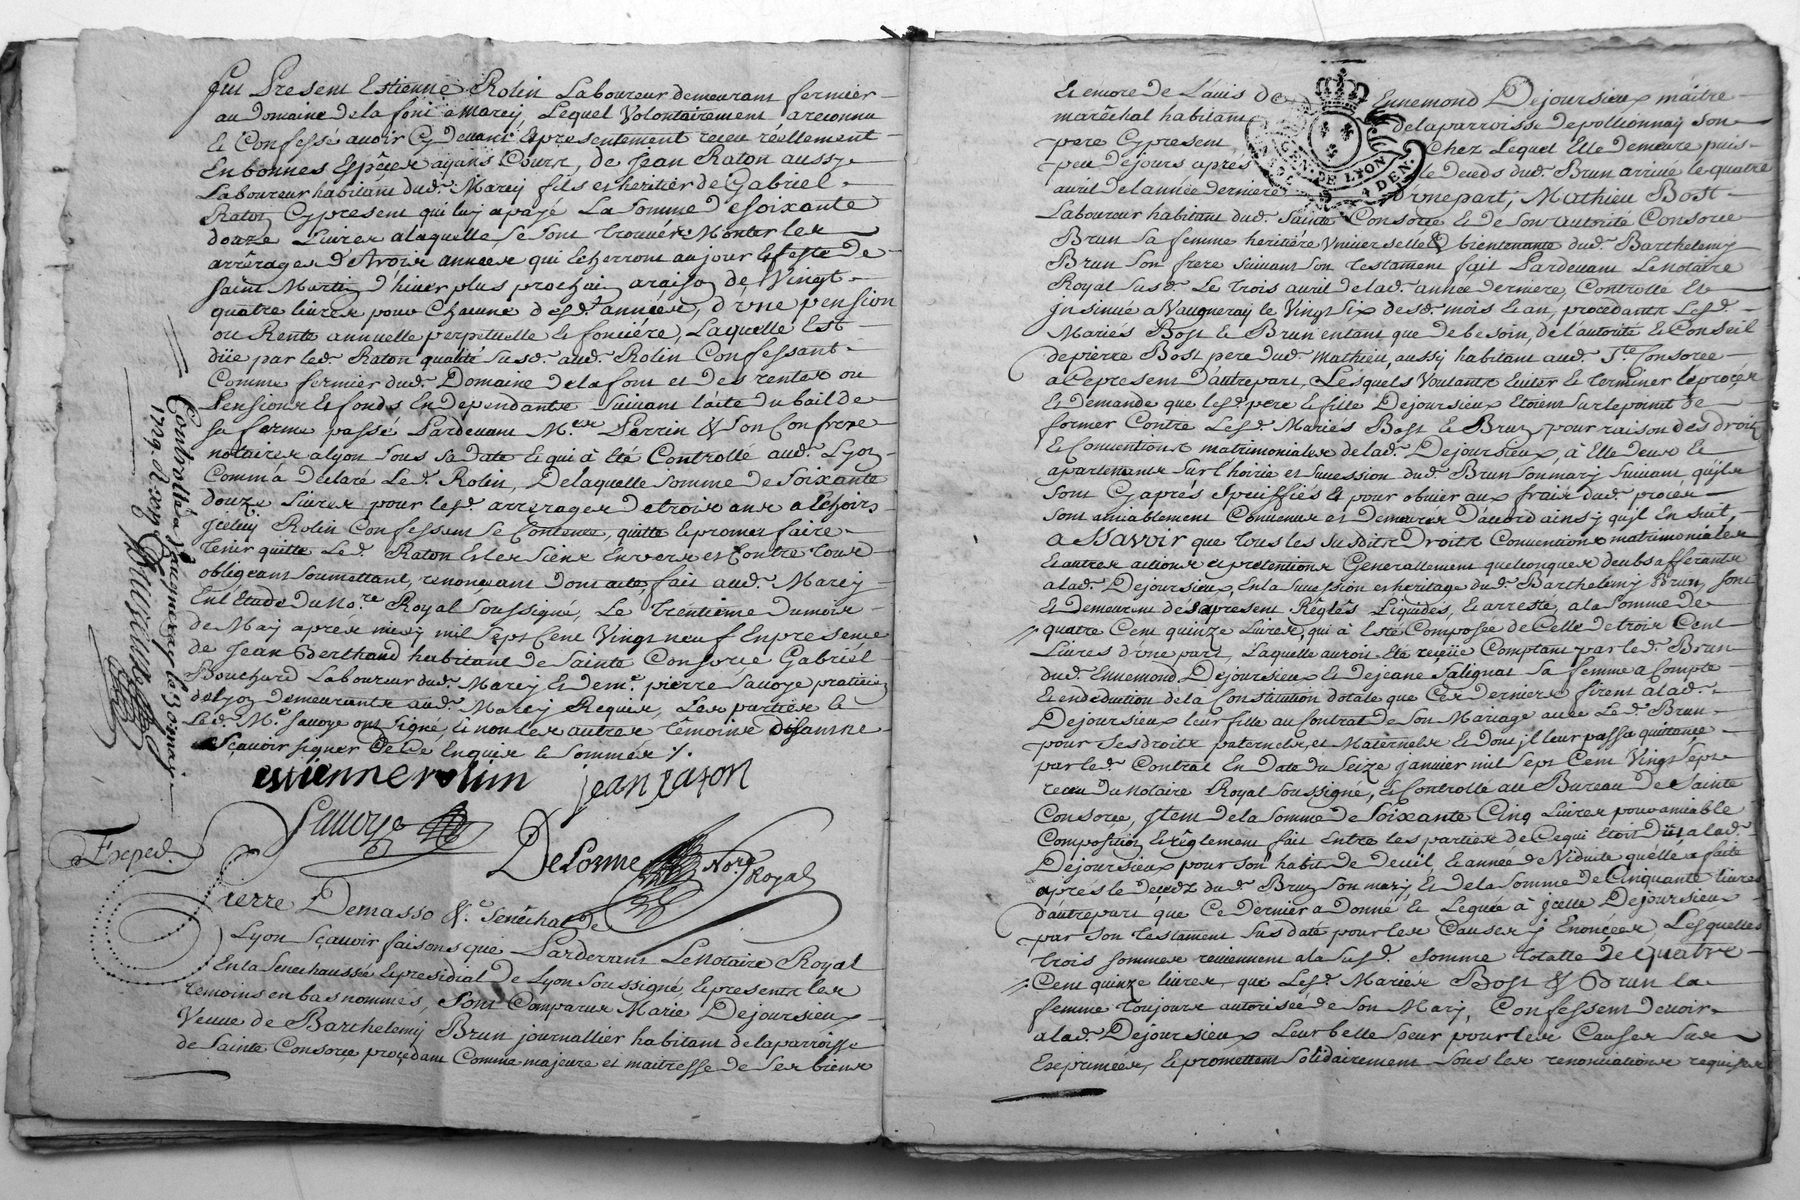 fut Present Estienne Rolin Laboureur demeurant fermier
au domaine de la font a Marcy Lequel Volontairement a reconnu
& Confessé avoir Cydevant & presentement receu réellement
En bonnes Espèces ayans Cours, de Jean Raton aussy
Laboureur habitant dud. Marcy fils et heritier de Gabriel
Raton Cypresent qui luy a payé La somme de soixante
douze Livres a laquelle se sont trouvés Monter les
arrérages de trois années qui Echerront au jour & feste de
saint Martin d'hiver plus prochain a raison de Vingt
quatre livres pour Chacune desd. années, d'vne pension
ou Rente annuelle perpetuelle & fonciere, Laquelle Est
düe par led. Raton qualité susd. aud. Rolin Confessant
Comme fermier dud. Domaine de la font et des rentes ou
Pensions & fonds En dependants suivant l'acte du bail de
sa ferme passé Pardevant M.es Perrin & son Confrere
notaires a lyon sous sa date & qui à été Controllé aud. Lyon
Comm'a déclaré Led. Rolin, De laquelle somme de soixante
douze Livres pour lesd. arrerages de trois ans a Echoirs
jcelluy Rolin Confessant se Contente, quitte & promet faire
tenir quitte Led. Raton & les siens Envers et Contre tous
obligeant soumettant, renonçant dont acte, fait aud. Marcy
En l'Etude du No.re Royal soussigné, Le trentieme du mois
de May apres midy mil sept Cent Vingt neuf En presence
de Jean Berthaud habitant de Sainte Consorce Gabriel
Bouchard Laboureur dud. Marcy & de m.e pierre Savoye praticien
de lyon demeurants aud. Marcy Requis, Les parties &
Led. M.e Savoye ont signé, & non les autres témoins
sçavoir signer de Ce Enquis & sommés /.
estienne rolin jean raton
Savoye
Delorme No.re Royal
Controllé a Vaugneray le
1729. R
Exped.
Pierre Demasso &.c Sénéchal de
Lyon sçavoir faisons que Pardevant Le Notaire Royal
En la Senechaussée & presidial de Lyon soussigné & presents les
témoins en bas nommés, sont Comparus Marie Dejoursieux
Veuve de Barthelemy Brun journallier habitant de la parroisse
de Sainte Consorce procedant Comme majeure et maitresse de ses biens
Et encore de L'auis de Ennemond Dejoursieux maitre
maréchal habitant de la parroisse de pollionnay son
pere Cypresent Chez Lequel Elle demeure puis
peu de jours apres le deceds dud. Brun arrivé le quatre
avril de l'année derniere d'vne part, Mathieu Bost
GEN. DE LYON 4 DEN.
Laboureur habitant dud. Sainte Consorce & de son autorité Consorce
Brun sa femme heritiere vniverselle & bientenante dud. Barthelemy
Brun son frere suivant son testament fait Pardevant Le Notaire
Royal susd. Le trois avril de lad. année derniere, Controllé &
jnsinué a Vaugneray le Vingt six desd. mois & an, procedants Lesd.
Mariés Bost & Brun entant que de besoin, de l'autorité & Conseil
de pierre Bost pere dud. Mathieu, aussy habitant aud. S.te Consorce
a Ce present D'autre part, Lesquels Voulants Euiter & terminer le procés
Et demande que lesd. pere & fille Dejoursieux Etoient sur le point de
former Contre Lesd. Mariés Bost & Brun pour raison des droits
& Conventions matrimoniales de lad. Dejoursieux, à Elle deus &
apartenants sur l'hoirie et sucession dud. Brun son mary suivant qu'jls
sont Cy aprés speciffiés & pour obuier aux frais dud. procés
sont amiablement Convenus et demeurés d'accord ainsy qu'jl En suit
a Sçavoir que tous les susdits Droits Conventions matrimoniales
& autres actions & pretentions Generallement quelconques deubs afferants
a lad. Dejoursieux, En la sucession et heritage dud. Barthelemy Brun, sont
Et demeurent des apresent Réglés Liquidés, & arrestés, a la somme de
quatre Cent quinze Livres, qui à Esté Composée de Celle de trois Cent
Livres d'vne part, Laquelle auroit Eté reçeüe Comptant par led. Brun
dud. Ennemond Dejoursieux & de Jeane Salignat sa femme a Compte
& en deduction de la Constitution dotale que Ces derniers firent a lad.
Dejoursieux leur fille au Contrat de son Mariage avec Led. Brun
pour ses droits paternels, et Maternels & dont jl leur passa quittance
par led. Contrat En date du seize janvier mil sept Cent Vingt sept
receu du notaire Royal soussigné, & Controllé au Bureau de Sainte
Consorce, jtem de la somme de soixante Cinq Livres pour amiable
Composition & réglement fait Entre les parties de Ce qui Etoit dü a lad.
Dejoursieux pour son habit de deüil & année de Viduité qu'elle a faite
aprés le decedz dud. Brun son mary, & de la somme de Cinquante livres
d'autre part que Ce dernier a Donné & Legué à jcelle Dejoursieux
par son testament sus daté pour les Causes y Enoncées, Lesquelles
trois sommes reviennent a la susd. somme totalle de quatre
Cent quinze livres, que Lesd. Mariés Bost & Brun la
femme toujours autorisée de son Mary, Confessent devoir
a lad. Dejoursieux Leur belle sœur pour les Causes sus
Exprimées, & promettent solidairement sous les renonciations requises